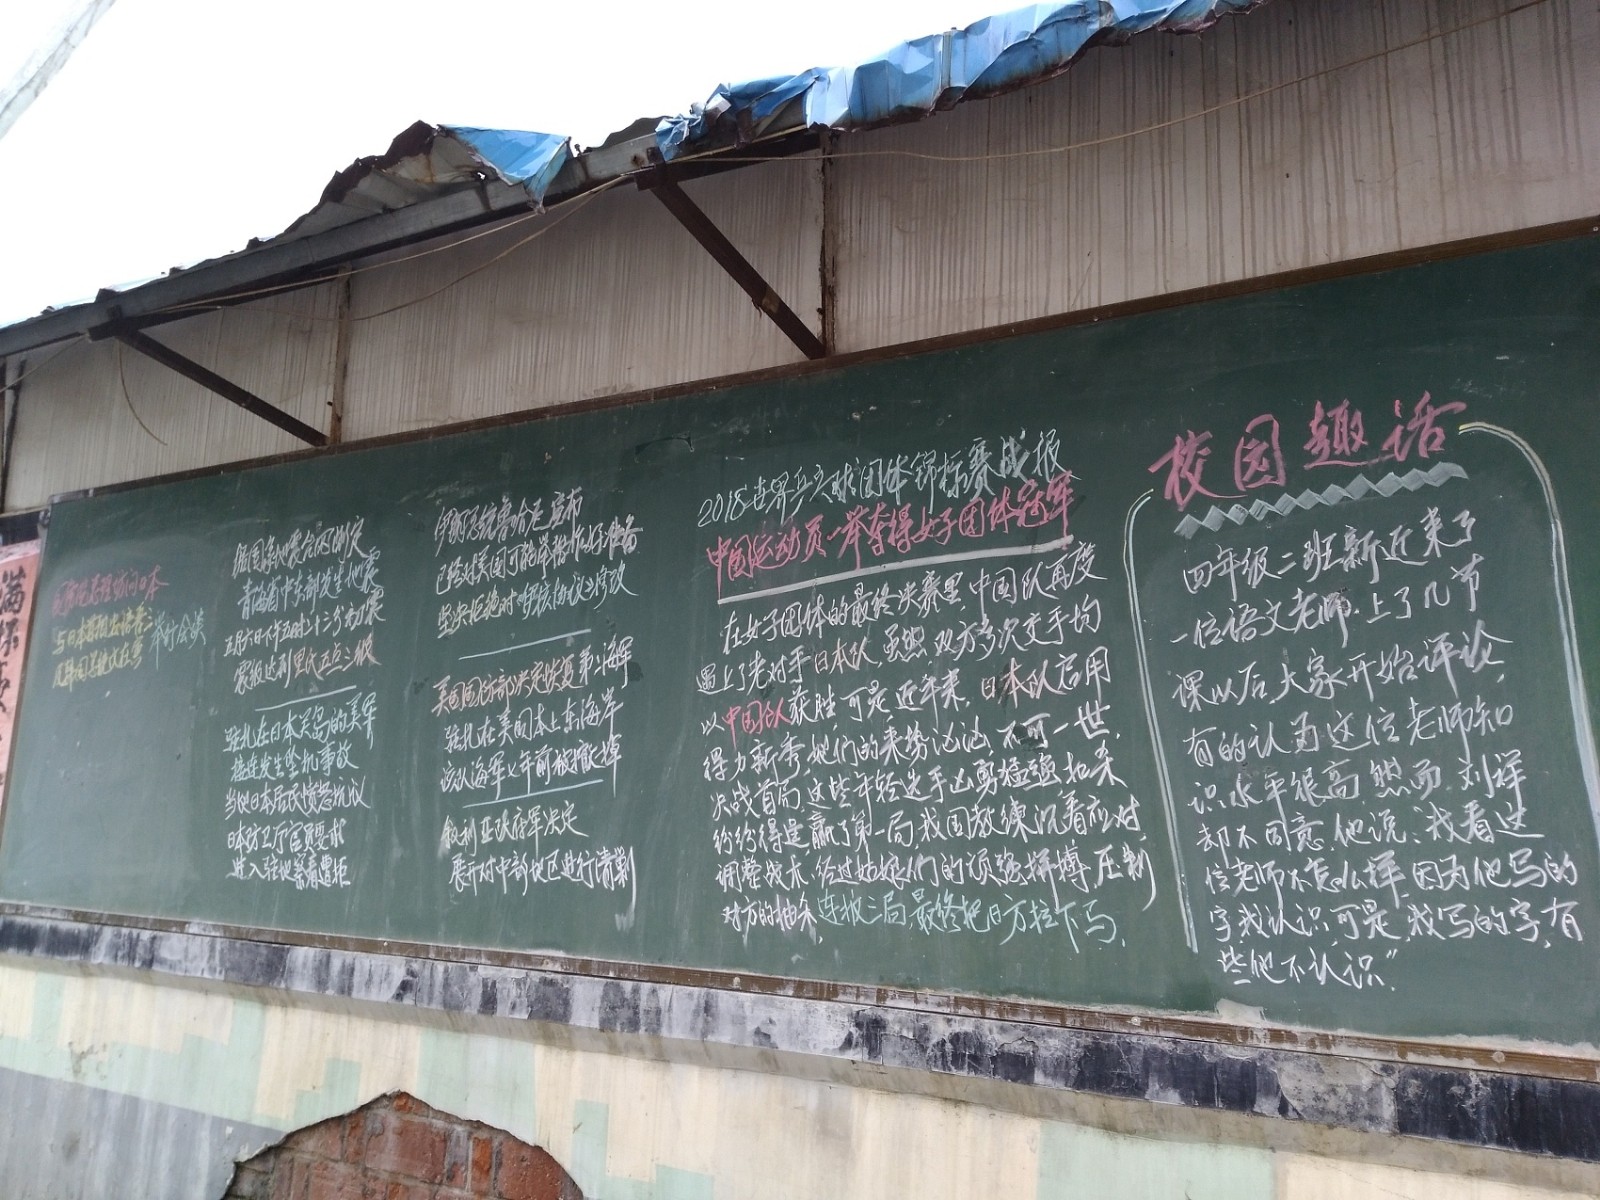 访问日本
与日本
举行会谈
我国
测定
青海省中东部发生地震
五月六日下午五时二十三分初震
震级达到里氏五点三级
驻扎在日本关岛的美军
接连发生坠机事故
当地日本居民愤怒抗议
日本防卫厅官员要求
进入驻地察看遭拒
伊朗总统鲁哈尼宣布
已经对美国可能举措作好准备
坚决拒绝对伊核协议的修改
美国国防部决定恢复第二海军
驻扎在美国本土东海岸
该队海军七年前被撤掉
叙利亚政府军决定
展开对中部地区进行清剿
2018世界乒乓球团体锦标赛战报
中国运动员一举夺得女子团体冠军
在女子团体的最终决赛里,中国队再度
遇上了老对手日本队,虽然双方多次交手均
以中国队获胜,可是近年来,日本队启用
得力新秀,她们的来势汹汹,不可一世,
决战首局,这些年轻选手凶勇猛强,扣杀
纷纷得逞,赢了第一局,我国教练沉着应对,
调整战术,经过姑娘们的顽强拼搏,压制
对方的抽杀,连扳三局,最终把日方拉下马.
校园趣话
四年级二班新近来了
一位语文老师.上了几节
课以后,大家开始评论,
有的认为这位老师知
识水平很高,然而,刘祥
却不同意,他说:我看这
位老师不怎么样,因为他写的
字,我认识,可是,我写的字,有
些他不认识."
满